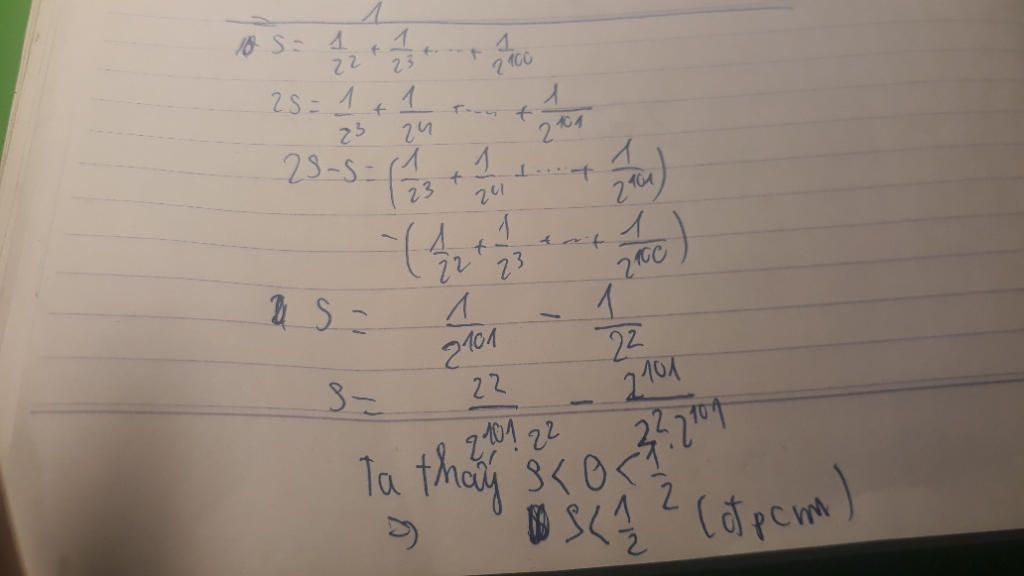 1
S = 1/2^2 + 1/2^3 + ... + 1/2^100
2S = 1/2^3 + 1/2^4 + ... + 1/2^101
2S - S = (1/2^3 + 1/2^4 + ... + 1/2^101)
- (1/2^2 + 1/2^3 + ... + 1/2^100)
S = 1/2^101 - 1/2^2
S = 2^2/(2^101 . 2^2) - 2^101/(2^2 . 2^101)
Ta thấy S < 0 < 1/2
=> S < 1/2 (đpcm)